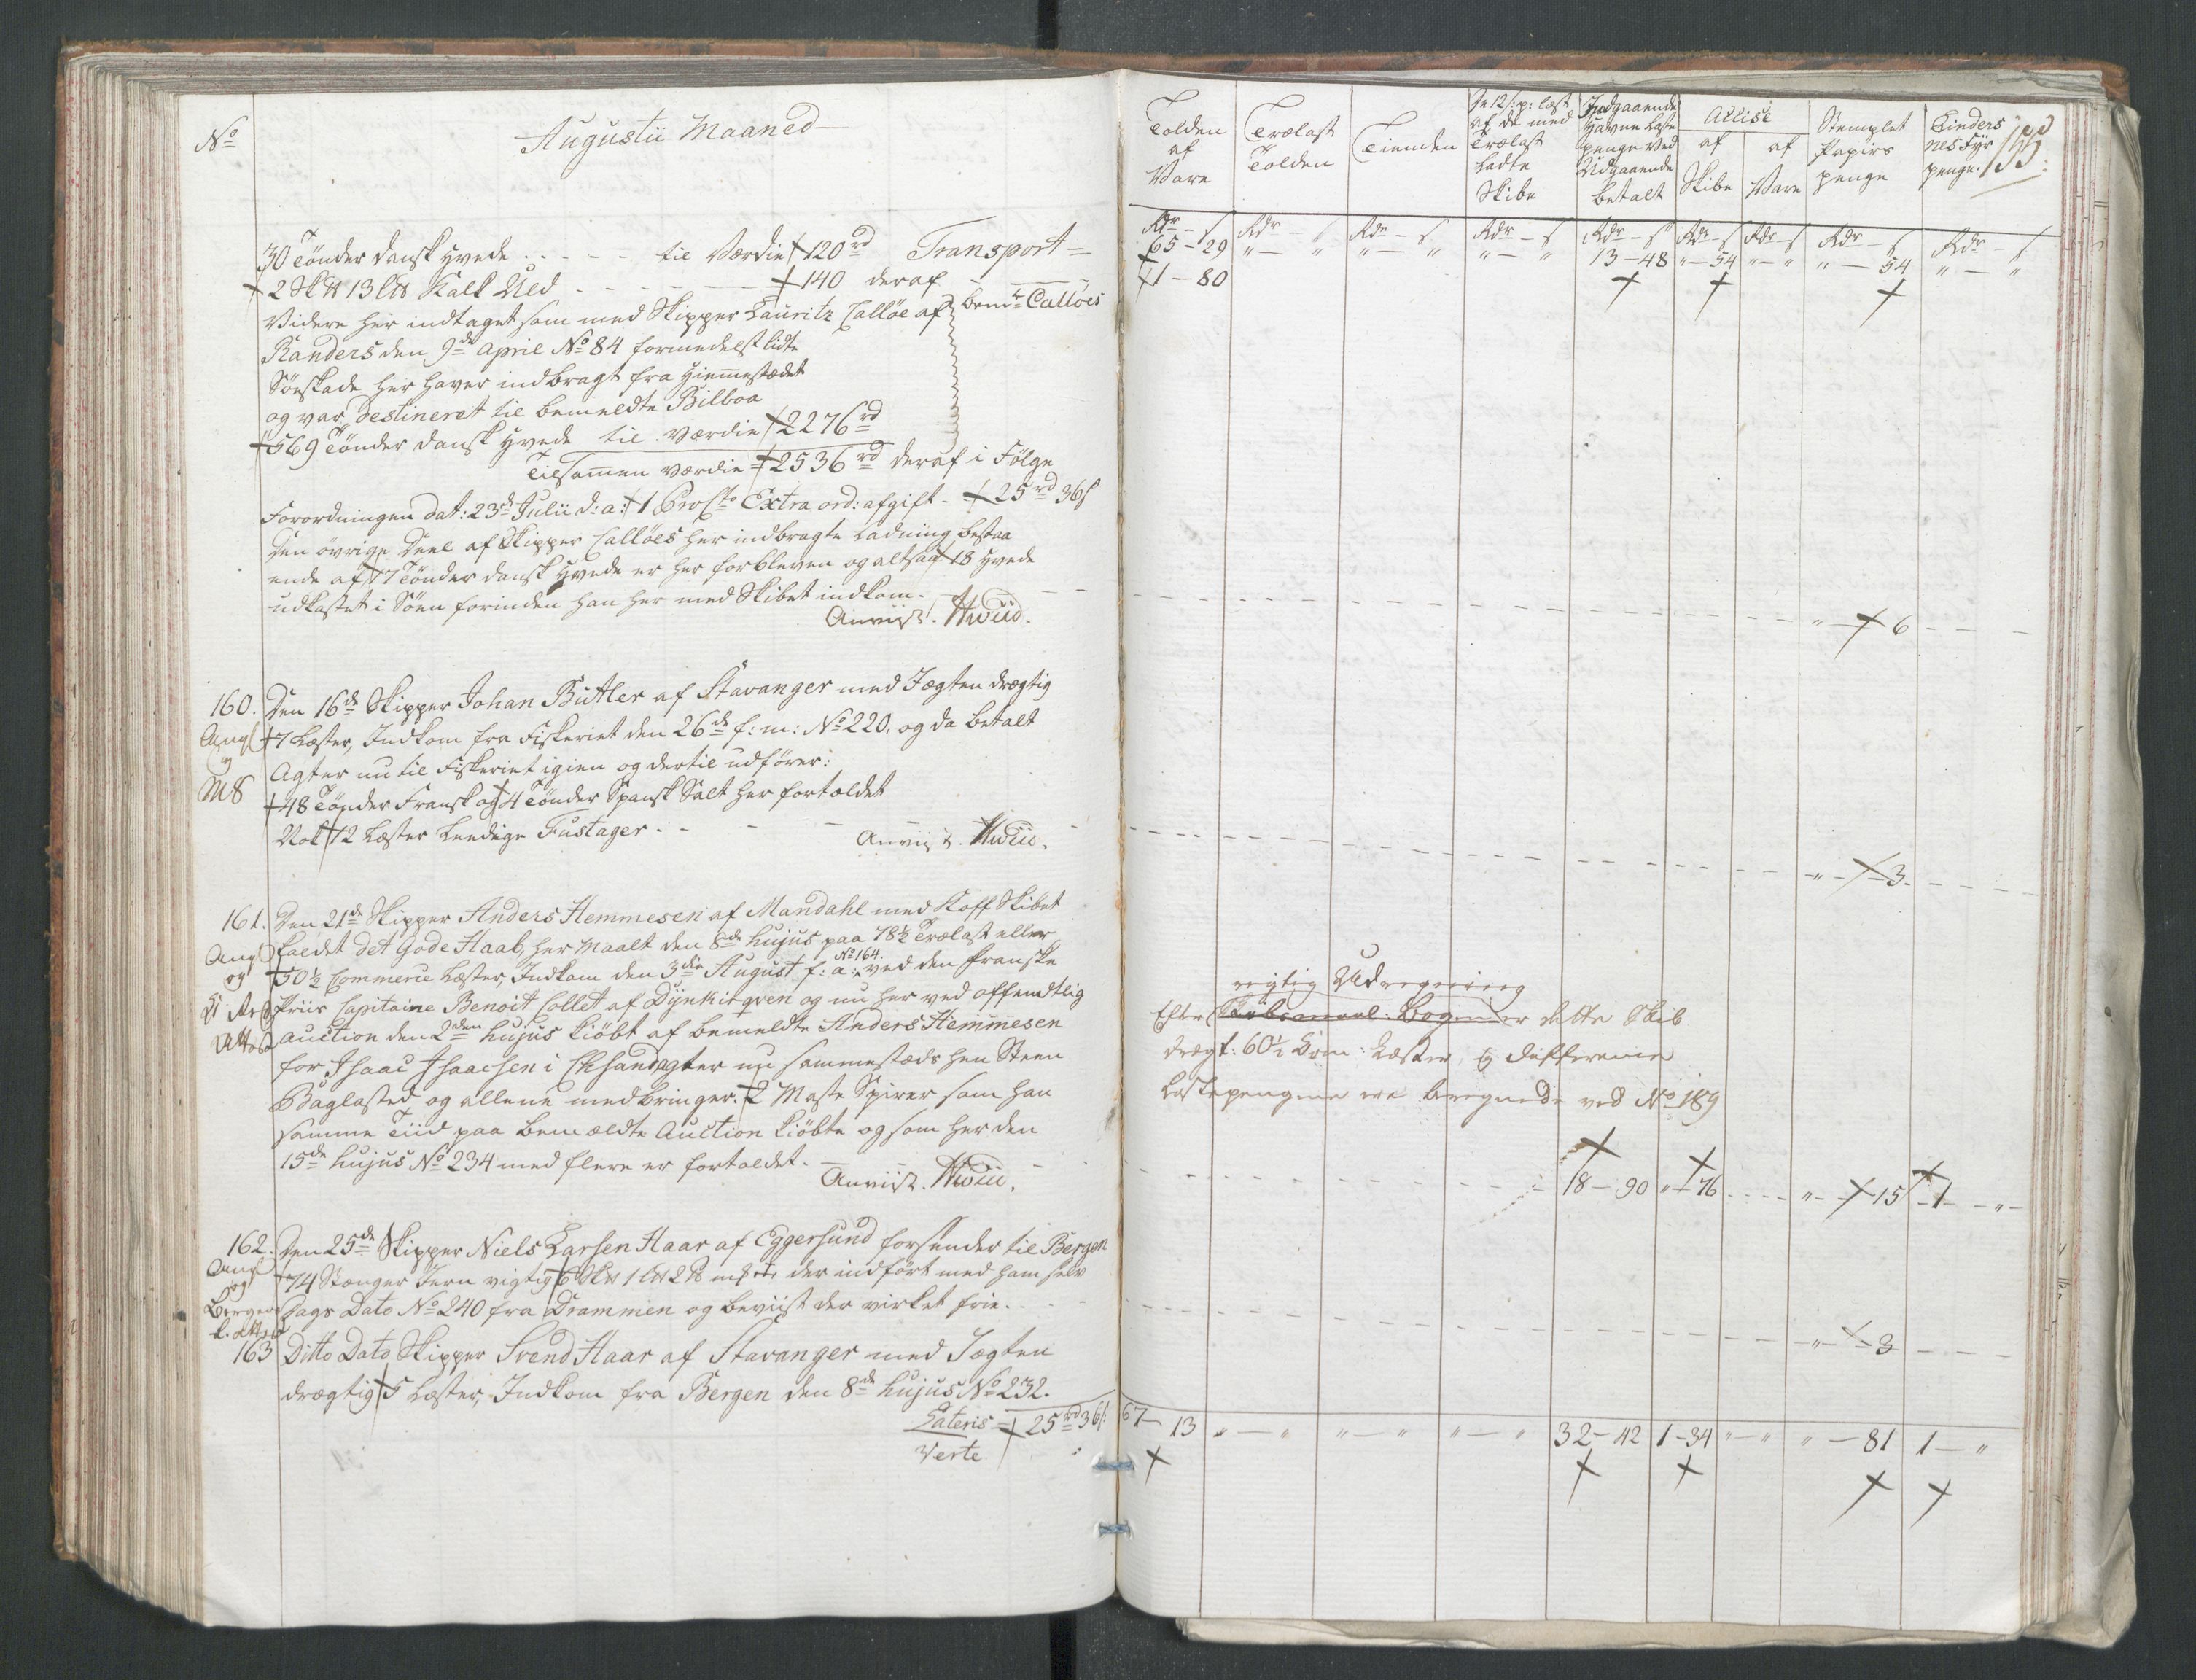 No
Augustii Maaned
30 Tönder dansk Hvede . . . . . til Værdie 120 rd Transport =
2 Sk℔ 13 L℔ Kalk Uld - - - - - - 140 deraf
Videre her indtaget som med Skipper Lauritz Callöe af bem:te Callöes
Randers den 9de April No 84 formedelst lidte
Söeskade her haver indbragt fra Hiemmestædet
og var destineret til bemeldte Bilboa
569 Tönder dansk Hvede til Værdie 2276 rd
Tilsammen Værdie = 2536 rd deraf i Fölge
Forordningen dat: 23de Julii d: a: 1 Pro Cto Extra ord: afgift - 25 rd 36 s
Den övrige Deel af Skipper Callöes her indbragte Ladning bestaa
ende af 77 Tönder dansk Hvede er her forbleven og altsaa 18 Hvede
udkastet i Söen forinden han her med Skibet indkom.
Anviist. Hwiid.
160. Den 16de Skipper Johan Butler af Stavanger med Jægten drægtig
Ang
7 Læster, Indkom fra Fiskeriet den 26de f: m: No 220. og da betalt
Agter nu til Fiskeriet igien og dertil udförer:
M8
48 Tönder Fransk og 4 Tönder Spansk Salt her fortoldet
Nok 12 Læster Leedige Fustager - -
Anviist. Hwiid.
161. Den 21de Skipper Anders Hemmesen af Mandahl med Koff Skibet
Ang
kaldet det Gode Haab, her Maalt den 8de hujus paa 78½ Trælast eller
og
50½ Commerce Læster, Indkom den 3die August f: a: No 164. ved den franske
Priis Capitaine Benoit Collet af Dynkirqven og nu her ved offendtlig
Auction den 2den hujus kiöbt af bemeldte Anders Hemmesen
for Isaac Isaachsen i Chsand, agter nu sammestæds hen Steen
Baglasted og allene medbringer. 2 Maste Spirer som han
samme Tiid paa bemældte Auction kiöbte og som her den
15de hujus No 234 med flere er fortoldet. -
Anviist. Hwiid.
162. Den 25de Skipper Niels Larsen Haar af Eggersund forsender til Bergen
Ang
og
74 Stænger Jern vigtig 6 Sk℔ 1 L℔ 2 ℔ der indfört med ham selv
Bergen
Dags Dato No 240 fra Drammen og beviist der virket frie.
163 Ditto Dato Skipper Svend Haar af Stavanger med Jægten
drægtig 5 Læster, Indkom fra Bergen den 8de hujus No 232.
Lateris = 25 rd 36 s
Verte
Tolden af Vare
Trælast Tolden
Tienden
De 12 s: p: læst af de med Trælast Ladte Skibe
Indgaaende Havne Laste penge ved Udgaaende betalt
Accise
af Skibe
af Vare
Stemplet Papirs penge
Linders nes Fyr penge.
155.
Rdr - s Rdr - s Rdr - s Rdr - s Rdr - s Rdr - s Rdr - s Rdr - s Rdr - s
65 - 29 " - " " - " " - " 13 - 48 " - 54 " - " " - 54 " - "
1 - 80
" - 6
" - 3.
rigtig Udregning
Efter Bogen er dette Skib
drægt: 60½ Com: Læster, og Differencen
Lastepengene ere beregnede ved No 189
18 - 90 " - 76 " - 15 1 - "
" - 3
67 - 13 " - " " - " " - " 32 - 42 1 - 34 " - " " - 81 1 - "